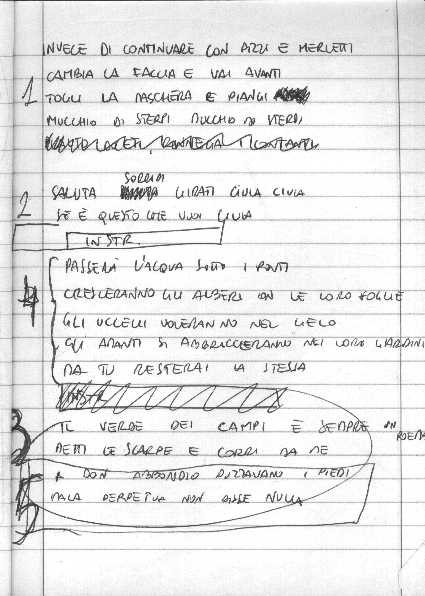 INVECE DI CONTINUARE CON PIZZI E MERLETTI
CAMBIA LA FACCIA E VAI AVANTI
1 TOGLI LA MASCHERA E PIANGI
MUCCHIO DI STERPI MUCCHIO DI STERPI
SORRIDI
2 SALUTA GIRATI CIVIA CIVIA
SE È QUESTO CHE VUOI CIVIA
INSTR.
PASSERÀ L'ACQUA SOTTO I PONTI
4 CRESCERANNO GLI ALBERI CON LE LORO FOGLIE
GLI UCCELLI VOLERANNO NEL CIELO
GLI AMANTI SI ABBRACCERANNO NEI LORO GIARDINI
MA TU RESTERAI LA STESSA
3 IL VERDE DEI CAMPI È SEMPRE UN POEMA
METTI LE SCARPE E CORRI DA ME
5 A DON ABBONDIO PUZZAVANO I PIEDI
MALA PERPETUA NON DISSE NULLA